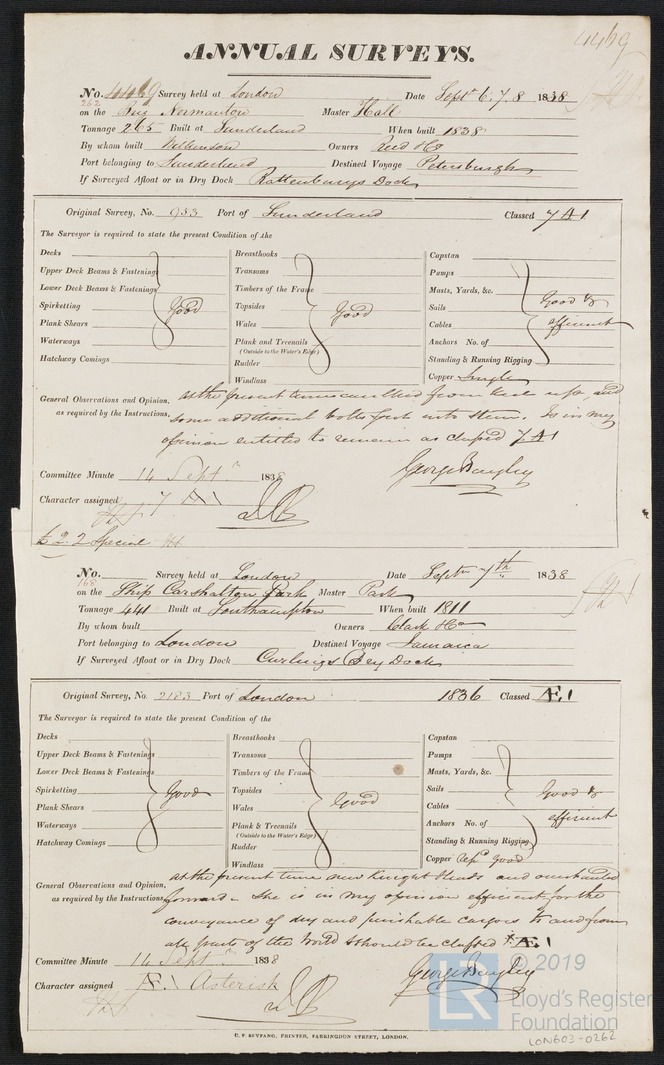 4469
ANNUAL SURVEYS.
No. 4469 Survey held at London Date Sept 6. 7. 8 1838
262
on the Brig Normanton Master Hall
Tonnage 265 Built at Sunderland When built 1838
By whom built Wilkinson Owners Reed & Co
Port belonging to Sunderland Destined Voyage Petersburgh
If Surveyed Afloat or in Dry Dock Rattenburys Dock
Original Survey, No. 933 Port of Sunderland Classed 7 A1
The Surveyor is required to state the present Condition of the
Decks Breasthooks Capstan
Upper Deck Beams & Fastenings Transoms Pumps
Lower Deck Beams & Fastenings Timbers of the Frame Masts, Yards, &c.
Spirketting Good Topsides Good Sails Good &
Plank Shears Wales Cables efficient
Waterways Plank and Treenails Anchors No. of
(Outside to the Water's Edge)
Hatchway Comings Rudder Standing & Running Rigging
Windlass Copper Single
General Observations and Opinion, at the present time caulked from keel up and
as required by the Instructions. some additional bolts put into Stem. Is in my
opinion entitled to remain as classed 7 A1
Committee Minute 14 Sept. 1838 George Bayley
Character assigned 7 A1
£ 2. 2 Special
No. Survey held at London Date Septr 7th 1838
168
on the Ship Carshalton Park Master Park
Tonnage 441 Built at Southampton When built 1811
By whom built Owners Clark & Co
Port belonging to London Destined Voyage Jamaica
If Surveyed Afloat or in Dry Dock Curlings Dry Dock
Original Survey, No. 2183 Port of London 1836 Classed Æ1
The Surveyor is required to state the present Condition of the
Decks Breasthooks Capstan
Upper Deck Beams & Fastenings Transoms Pumps
Lower Deck Beams & Fastenings Timbers of the Frame Masts, Yards, &c.
Spirketting Good Topsides Good Sails Good &
Plank Shears Wales Cables efficient
Waterways Plank & Treenails Anchors No. of
(Outside to the Water's Edge)
Hatchway Comings Rudder Standing & Running Rigging
Windlass Copper Good
General Observations and Opinion, at the present time new Knight Heads and overhauled
as required by the Instructions. forward. She is in my opinion efficient for the
conveyance of dry and perishable cargoes to and from
all parts of the World & should be classed *Æ1
Committee Minute 14 Sept. 1838 George Bayley
Character assigned Æ.1 Asterisk
© 2019
LR Lloyd's Register
Foundation
C. F. SEYFANG, PRINTER, FARRINGDON STREET, LONDON.
LON603-0262